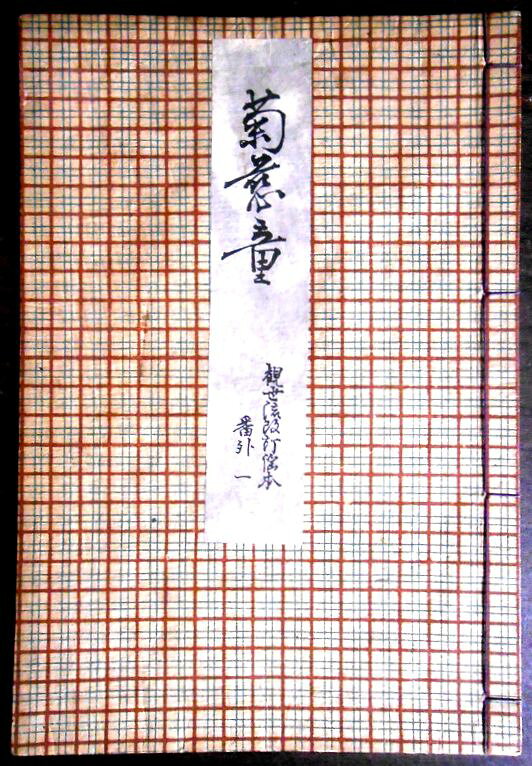 菊慈童
觀世流改訂謡本
番外 一